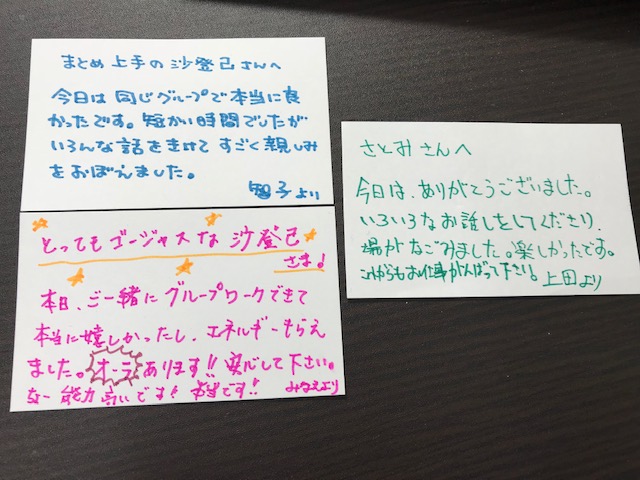 まとめ上手の沙登己さんへ
今日は同じグループで本当に良
かったです。短かい時間でしたが
いろんな話をきけて すごく親しみ
をおぼえました。
智子より
とってもゴージャスな 沙登己
さま♪
本日、ご一緒にグループワークできて
本当に嬉しかったし、エネルギーもらえ
ました。オーラあります!! 安心して下さい。
能力高いです! 本当です!! みなえより
さとみさんへ
今日は、ありがとうございました。
いろいろなお話しをしてくださり、
場がなごみました。楽しかったです。
これからもお仕事がんばって下さい。上田より